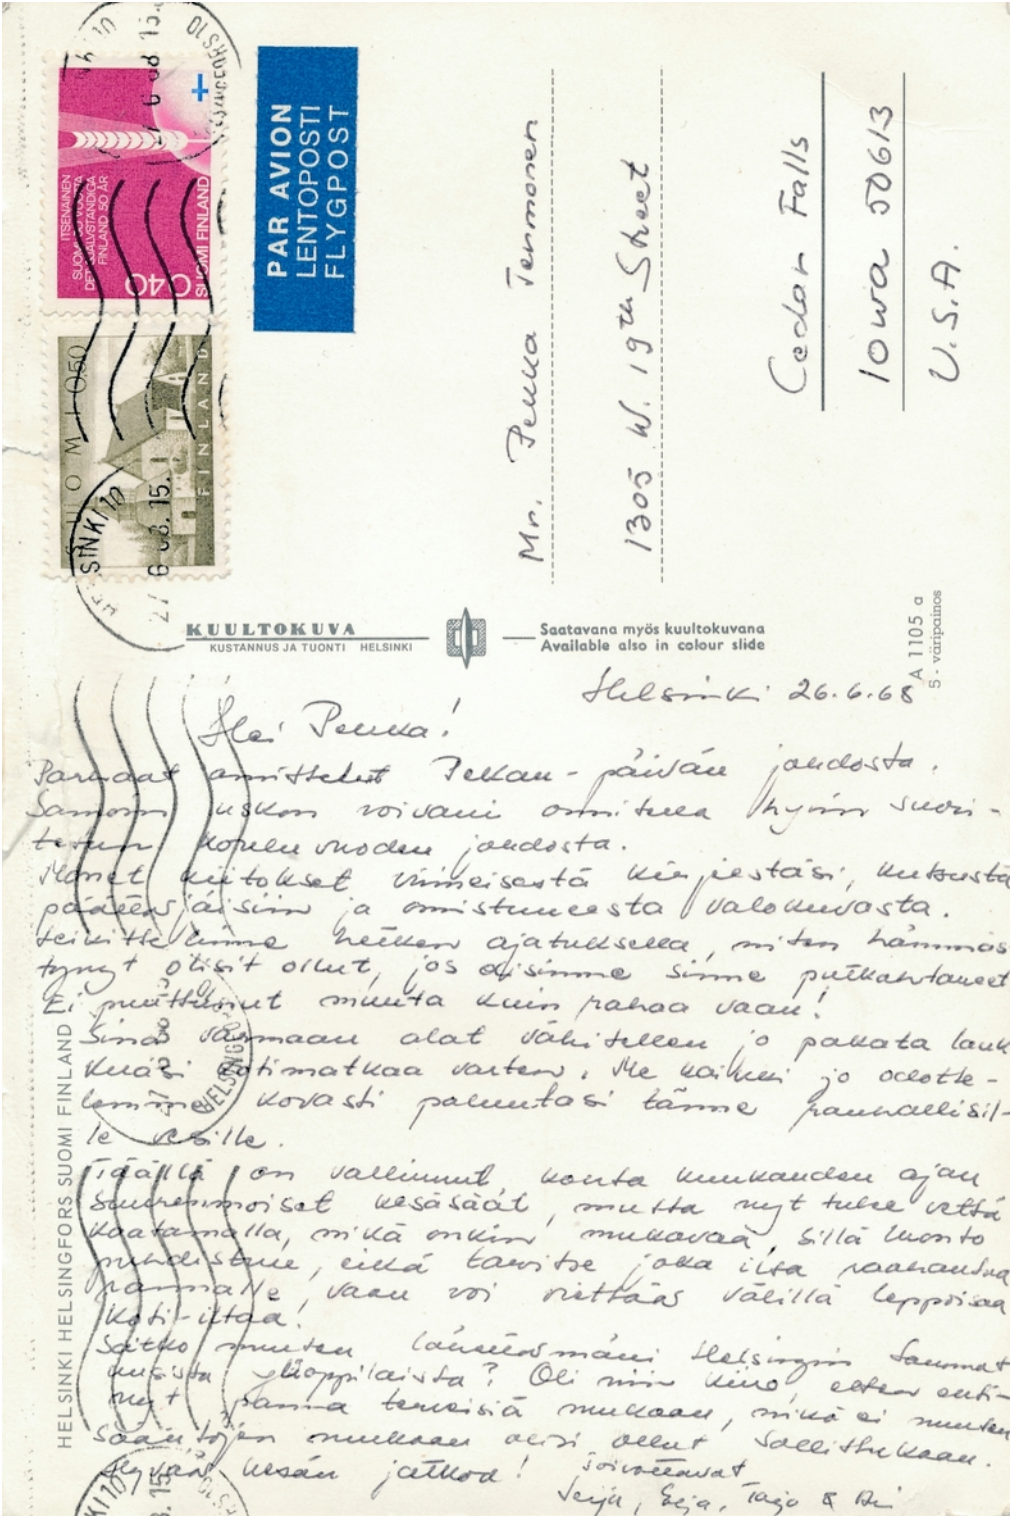 ITSENÄINEN
SUOMI 50 VUOTTA
DET SJÄLVSTÄNDIGA
FINLAND 50 ÅR
0,40
SUOMI FINLAND
SUOMI 0,50
FINLAND
HELSINKI 10
27.6.68.15
PAR AVION
LENTOPOSTI
FLYGPOST
Mr. Pekka
1305 W. 19th Street
Cedar Falls
Iowa 50613
U.S.A.
KUULTOKUVA
KUSTANNUS JA TUONTI HELSINKI
Saatavana myös kuultokuvana
Available also in colour slide
A 1105 a
5 - väripainos
Helsinki 26.6.68
Hei Pekka!
Parhaat onnittelut Pekan-päivän johdosta.
Samoin uskon voivani onnitella hyvin suori-
tetun kouluvuoden johdosta.
Monet kiitokset viimeisestä kirjeestäsi, kutsusta
päättäjäisiin ja onnistuneesta valokuvasta.
Leikittelimme hetken ajatuksella, miten hämmäs
tynyt olisit ollut, jos olisimme sinne putkahtaneet
Ei puuttunut muuta kuin rahaa vaan!
Sinä varmaan alat vähitellen jo pakata lauk
kuasi kotimatkaa varten. Me kaikki jo odotte-
lemme kovasti paluutasi tänne rauhallisil-
le vesille.
Täällä on vallinnut kohta kuukauden ajan
suurenmoiset kesäsäät, mutta nyt tulee vettä
kaatamalla, mikä onkin mukavaa, sillä luonto
puhdistuu, eikä tarvitse joka ilta raahautua
rannalle, vaan voi viettää välillä leppoisaa
koti-iltaa.
Saitko muuten lähettämäni Helsingin Sanomat
uusista ylioppilaista? Oli niin kiire, etten enti-
nyt panna terveisiä mukaan, mikä ei muuten
sääntöjen mukaan olisi ollut sallittukaan.
Hyvää kesän jatkoa! toivottavat
Seija, Eija, Tarja &
HELSINKI HELSINGFORS SUOMI FINLAND